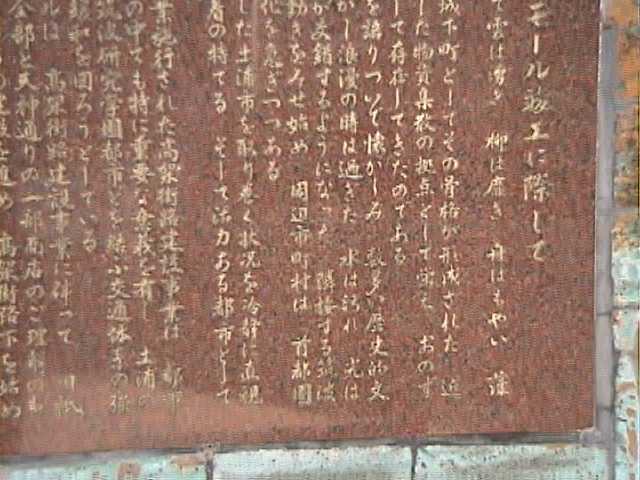 モール竣工に際して
て雲は湧き 柳は靡き 舟はもやい 藻
城下町としてその骨格が形成された 近
した物資集散の拠点として栄え、おのず
して存在してきたのである
を語りついで懐かしみ 数多い歴史的文
かし浪漫の時は過ぎた 水は汚れ 光は
が交錯するようになった 隣接する筑波
動きをみせ始め 周辺市町村は 首都圏
化を急ぎつつある
した土浦市を取り巻く状況を冷静に直視
者の持てる そして活力ある都市として
業施行された高架街路建設事業は 都市
の中でも特に重要な系統を有し 土浦の
筑波研究学園都市とを結ぶ交通体系の強
緩和を図ろうとしている
ルは 高架街路建設事業に伴って 旧祇
全部と天神通りの一部商店のご理解のも
建設を進め 高架街路下を始め